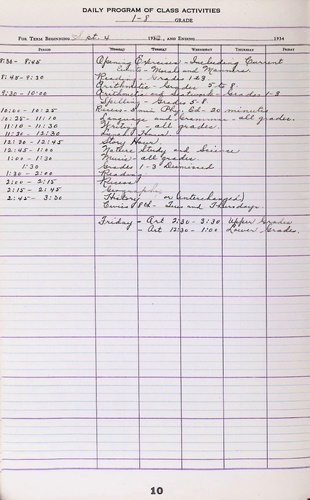 DAILY PROGRAM OF CLASS ACTIVITIES
1-8 GRADE
FOR TERM BEGINNING Sept. 4 193 , AND ENDING 1934
PERIOD Monday Tuesday Wednesday Thursday Friday
8:30 - 8:45 Opening Exercises - Including Current
Events - Morals and Manners.
8:45 - 9:30 Reading - Grades 1-2-3.
Arithmetic - Grades 5 to 8.
9:30 - 10:00 Arithmetic and Seatwork - Grades 1-3
Spelling - Grades 5-8.
10:00 - 10:25 Recess - Some Phy. Ed - 20 minutes
10:25 - 11:10 Language and Grammar - all grades.
11:10 - 11:30 Writing - all grades.
11:30 - 12:30 Hour.
12:30 - 12:45 Story Hour.
12:45 - 1:00 Nature Study and Science
1:00 - 1:30 Music - all grades.
1:30 Grades 1-3 Dismissed
1:30 - 2:00 Reading
2:00 - 2:15 Recess
2:15 - 2:45 Geography
2:45 - 3:30 History or (interchanged)
Civics 8th - Tues and Thursdays.
Friday - Art 2:30 - 3:30 Upper Grades
- Art 12:30 - 1:00 Lower Grades.
10